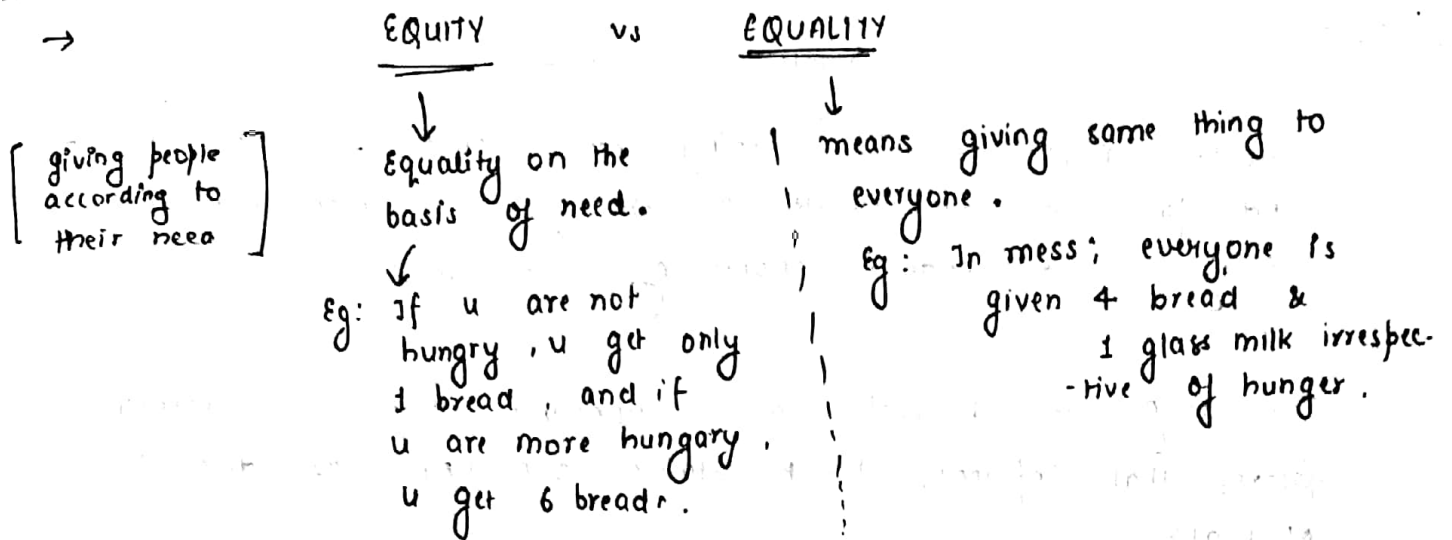 → EQUITY vs EQUALITY
[ giving people
according to
their need ]
Equality on the
basis of need.
Eg: If u are not
hungry , u get only
1 bread , and if
u are more hungary .
u get 6 breads.
means giving same thing to
everyone .
Eg : In mess ; everyone is
given 4 bread &
1 glass milk irrespec-
-tive of hunger .